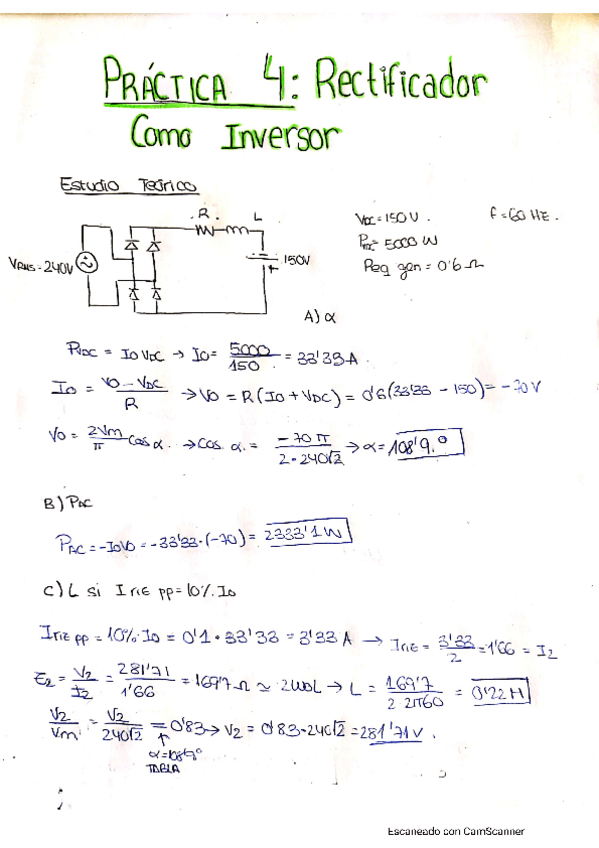 PRÁCTICA 4: Rectificador
Como Inversor
Estudio Teórico
R. L
VRMS=240V
150V
VDC=150V. f=60Hz.
PDC=5000W
Req gen=0'6Ω
A) α
PVDC = Io VDC → Io = 5000/150 = 33'33A.
Io = (Vo - VDC)/R → Vo = R(Io + VDC) = 0'6(33'33 - 150) = -70V
Vo = 2Vm/π cos α. → cos α. = -70π/(2·240√2) → α = 108'9.°
B) PAC
PAC = -IoVo = -33'33·(-70) = 2333'1W
C) L si IriE pp=10%.Io
IriE pp = 10%·Io = 0'1·33'33 = 3'33A → IriE = 3'33/2 = 1'66 = I2
Z2 = V2/I2 = 281'71/1'66 = 169'7Ω ≃ 2ω0L → L = 169'7/(2·2π60) = 0'22H
V2/Vm = V2/240√2 = 0'83 → V2 = 0'83·240√2 = 281'71V.
α=108'9°
TABLA
Escaneado con CamScanner